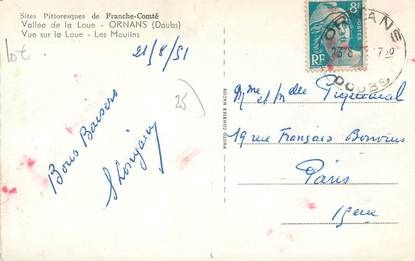 Sites Pittoresques de Franche-Comté
Vallée de la Loue - ORNANS (Doubs)
Vue sur la Loue - Les Moulins
lot
21/8/51
25
Bons Baisers
8F
RF
ORNANS
DOUBS
PHOTO COMBIER MACON
Mme et Mlle
19 rue François Bonvin
Paris
15eme